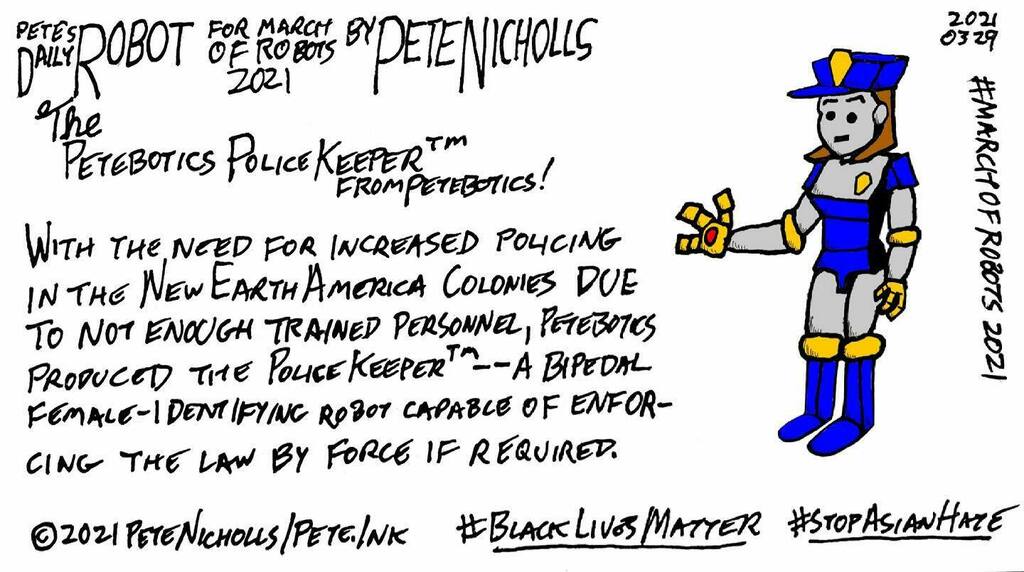 PETE'S DAILY ROBOT FOR MARCH OF ROBOTS 2021 BY PETE NICHOLLS
The
PETEBOTICS POLICEKEEPER™
FROM PETEBOTICS!
WITH THE NEED FOR INCREASED POLICING
IN THE NEW EARTH AMERICA COLONIES DUE
TO NOT ENOUGH TRAINED PERSONNEL, PETEBOTICS
PRODUCED THE POLICEKEEPER™--A BIPEDAL
FEMALE-IDENTIFYING ROBOT CAPABLE OF ENFOR-
CING THE LAW BY FORCE IF REQUIRED.
©2021 PETENICHOLLS/PETE.INK #BLACKLIVESMATTER #STOPASIANHATE
2021
0329
#MARCHOFROBOTS 2021